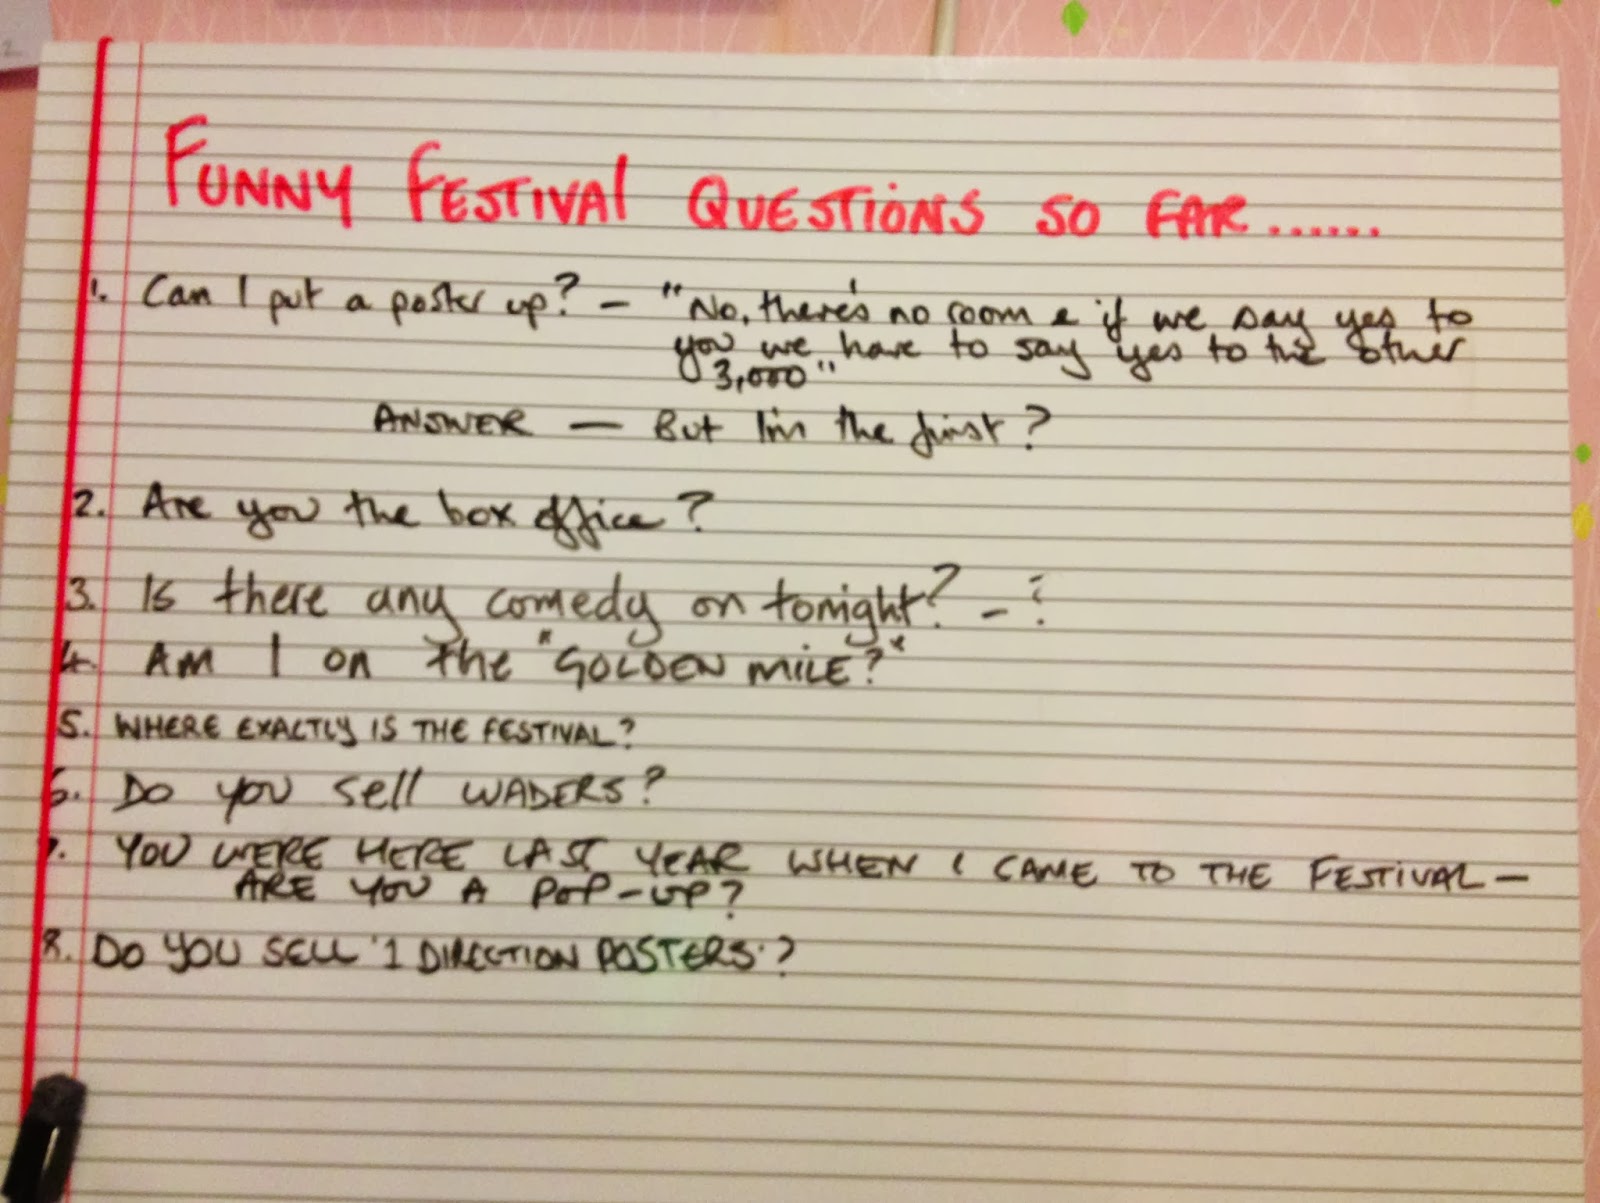 FUNNY FESTIVAL QUESTIONS SO FAR......
1. Can I put a poster up? – "No, there's no room & if we say yes to
you we have to say yes to the other
3,000"
ANSWER — But I'm the first?
2. Are you the box office?
3. Is there any comedy on tonight? – ?
4. AM I on the "GOLDEN MILE?"
5. WHERE EXACTLY IS THE FESTIVAL?
6. DO you sell WADERS?
7. YOU WERE HERE LAST YEAR WHEN I CAME TO THE FESTIVAL –
ARE YOU A POP-UP?
8. DO YOU SELL '1 DIRECTION POSTERS'?